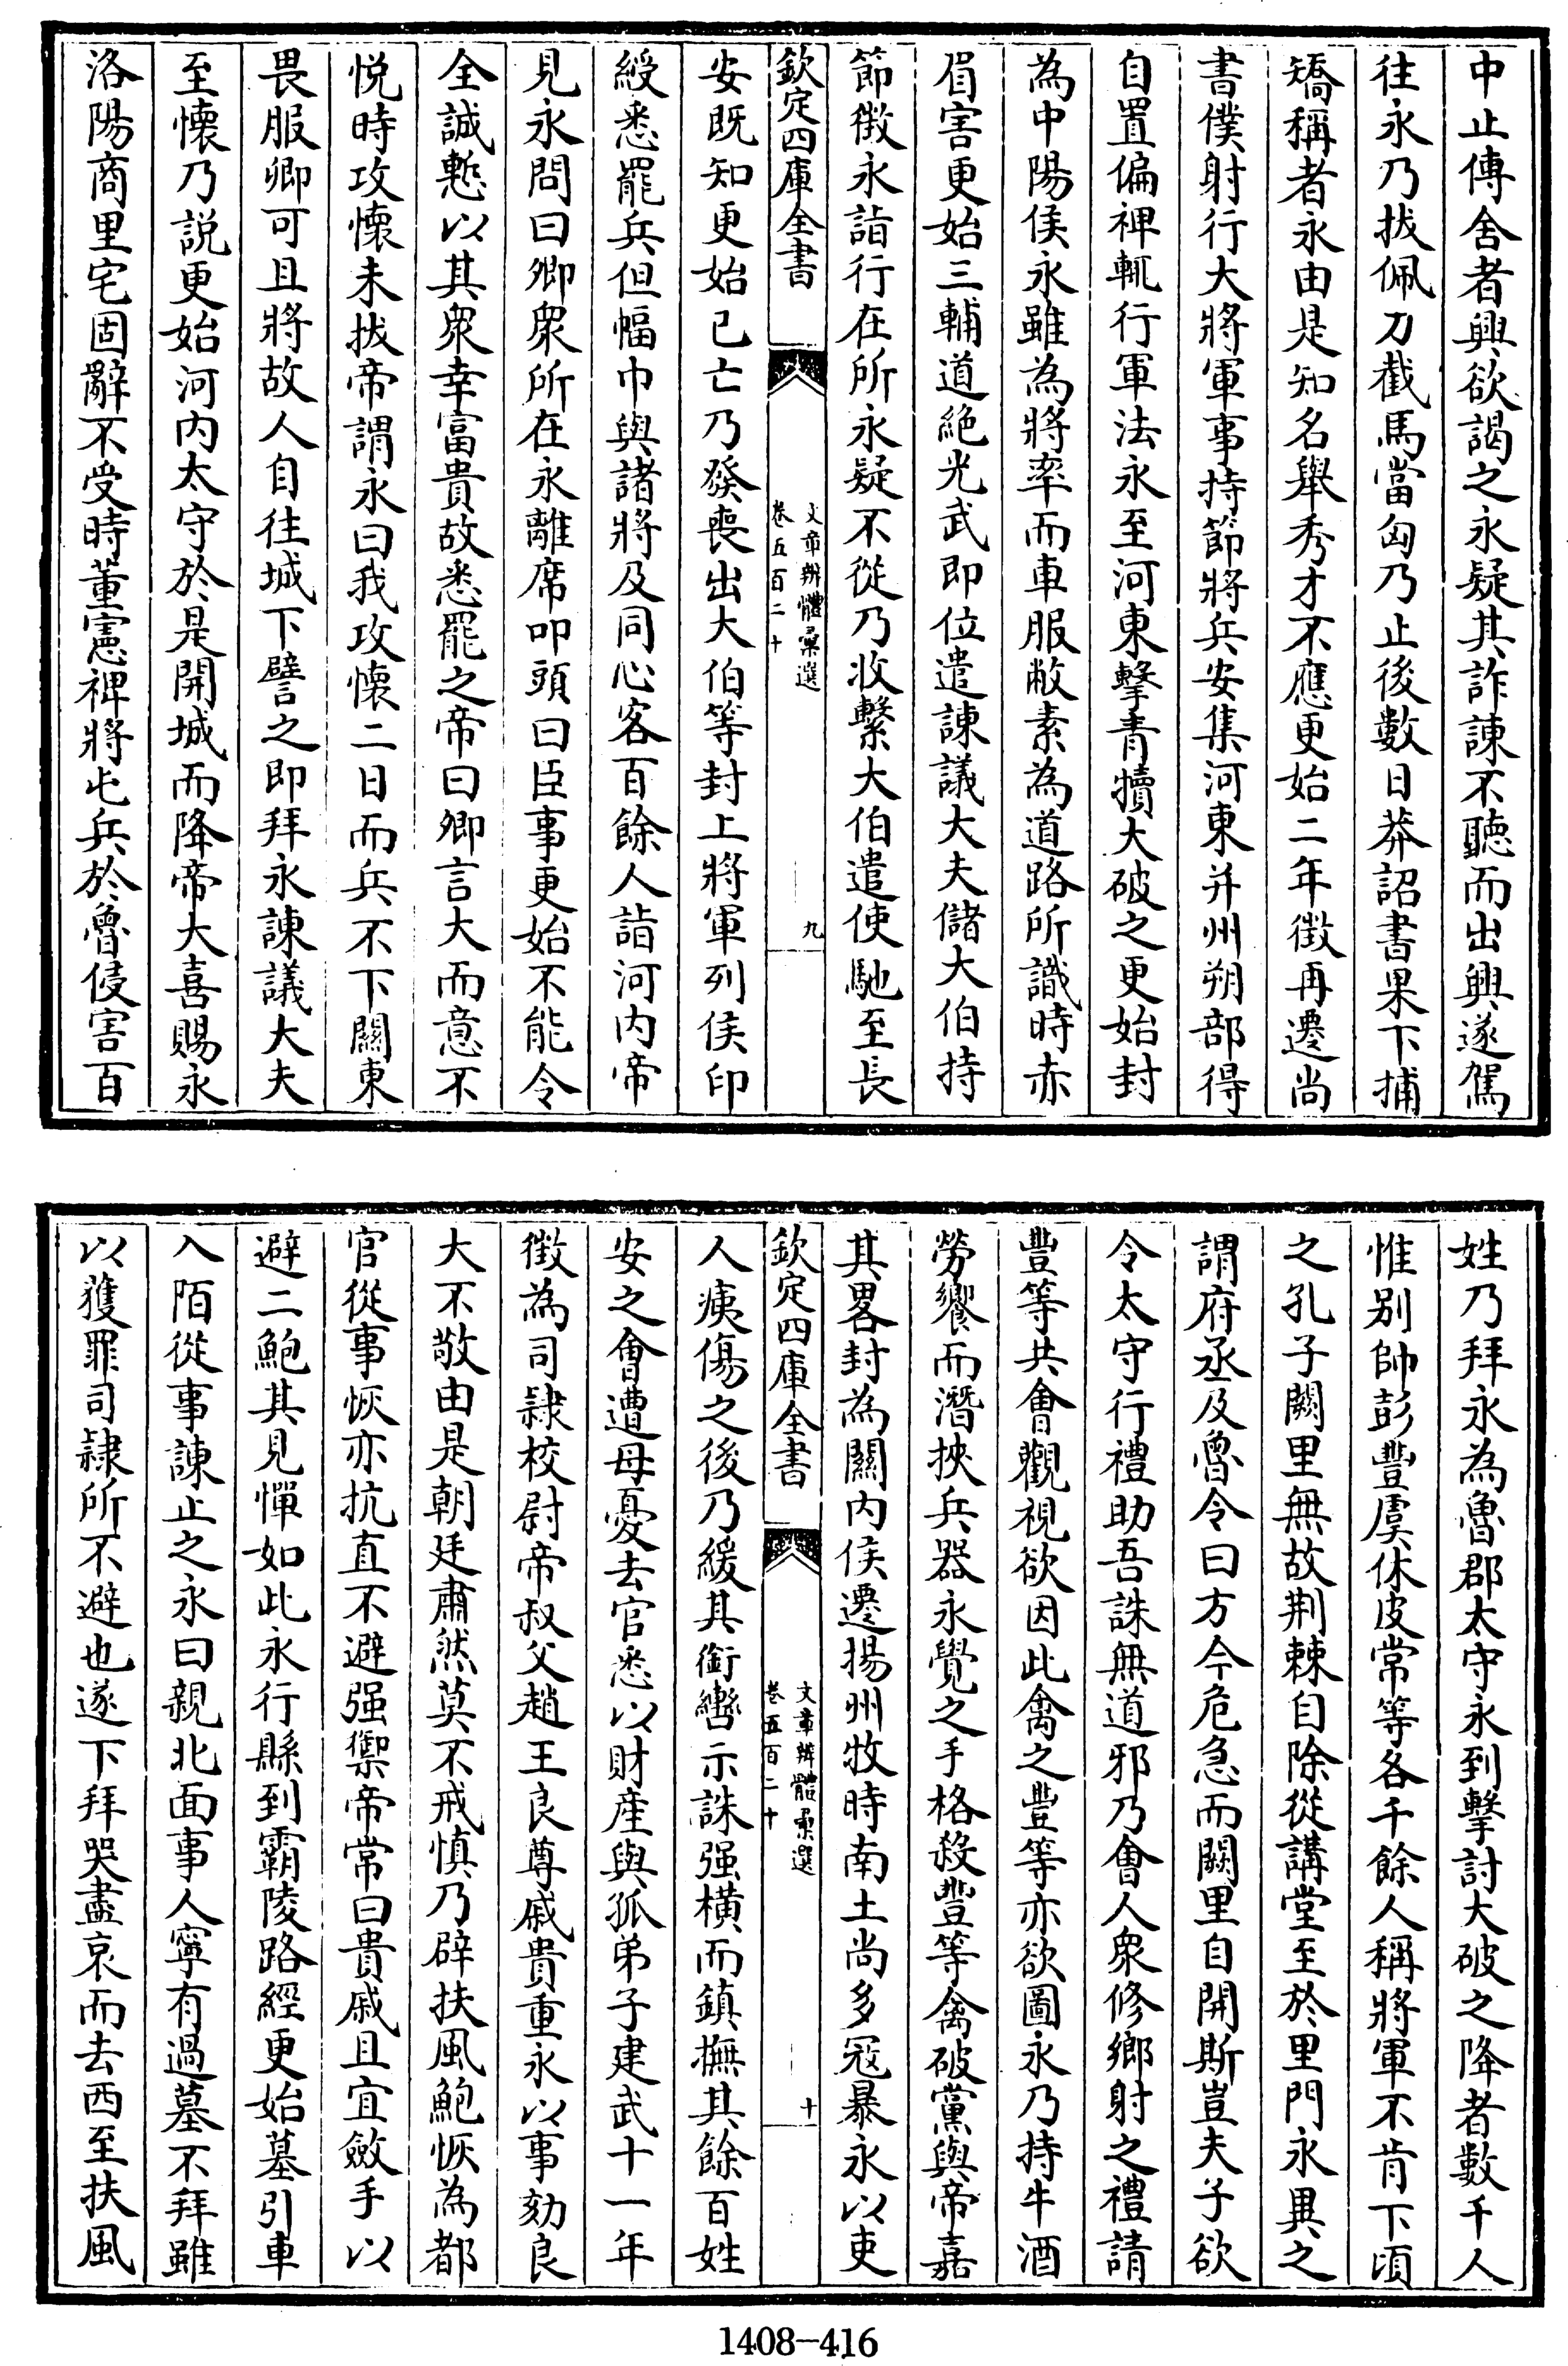 中止傳舍者興欲謁之永疑其詐諫不聽而出興遂駕
往永乃拔佩刀截馬當匈乃止後數日莽詔書果下捕
矯稱者永由是知名舉秀才不應更始二年徵再遷尚
書僕射行大將軍事持節將兵安集河東并州朔部得
自置偏裨輒行軍法永至河東擊青犢大破之更始封
為中陽侯永雖為將率而車服敝素為道路所識時赤
眉害更始三輔道絶光武即位遣諫議大夫儲大伯持
節徵永詣行在所永疑不從乃收繫大伯遣使馳至長
欽定四庫全書
文章辨體彙選
卷五百二十
九
安既知更始已亡乃發喪出大伯等封上將軍列侯印
綬悉罷兵但幅巾與諸將及同心客百餘人詣河内帝
見永問曰卿衆所在永離席叩頭曰臣事更始不能令
全誠慙以其衆幸富貴故悉罷之帝曰卿言大而意不
悦時攻懷未拔帝謂永曰我攻懷二日而兵不下關東
畏服卿可且將故人自往城下譬之即拜永諫議大夫
至懷乃説更始河内太守於是開城而降帝大喜賜永
洛陽商里宅固辭不受時董憲裨將屯兵於魯侵害百
姓乃拜永為魯郡太守永到擊討大破之降者數千人
惟别帥彭豐虞休皮常等各千餘人稱將軍不肯下頃
之孔子闕里無故荆棘自除從講堂至於里門永異之
謂府丞及魯令曰方今危急而闕里自開斯豈夫子欲
令太守行禮助吾誅無道邪乃會人衆修鄉射之禮請
豐等共會觀視欲因此禽之豐等亦欲圖永乃持牛酒
勞饗而潛挾兵器永覺之手格殺豐等禽破黨與帝嘉
其畧封為關内侯遷揚州牧時南土尚多寇暴永以吏
欽定四庫全書
文章辨體彙選
卷五百二十
十
人痍傷之後乃緩其銜轡示誅强横而鎮撫其餘百姓
安之會遭母憂去官悉以財産與孤弟子建武十一年
徵為司隷校尉帝叔父趙王良尊戚貴重永以事劾良
大不敬由是朝廷肅然莫不戒慎乃辟扶風鮑恢為都
官從事恢亦抗直不避强禦帝常曰貴戚且宜斂手以
避二鮑其見憚如此永行縣到霸陵路經更始墓引車
入陌從事諫止之永曰親北面事人寧有過墓不拜雖
以獲罪司隷所不避也遂下拜哭盡哀而去西至扶風
1408-416